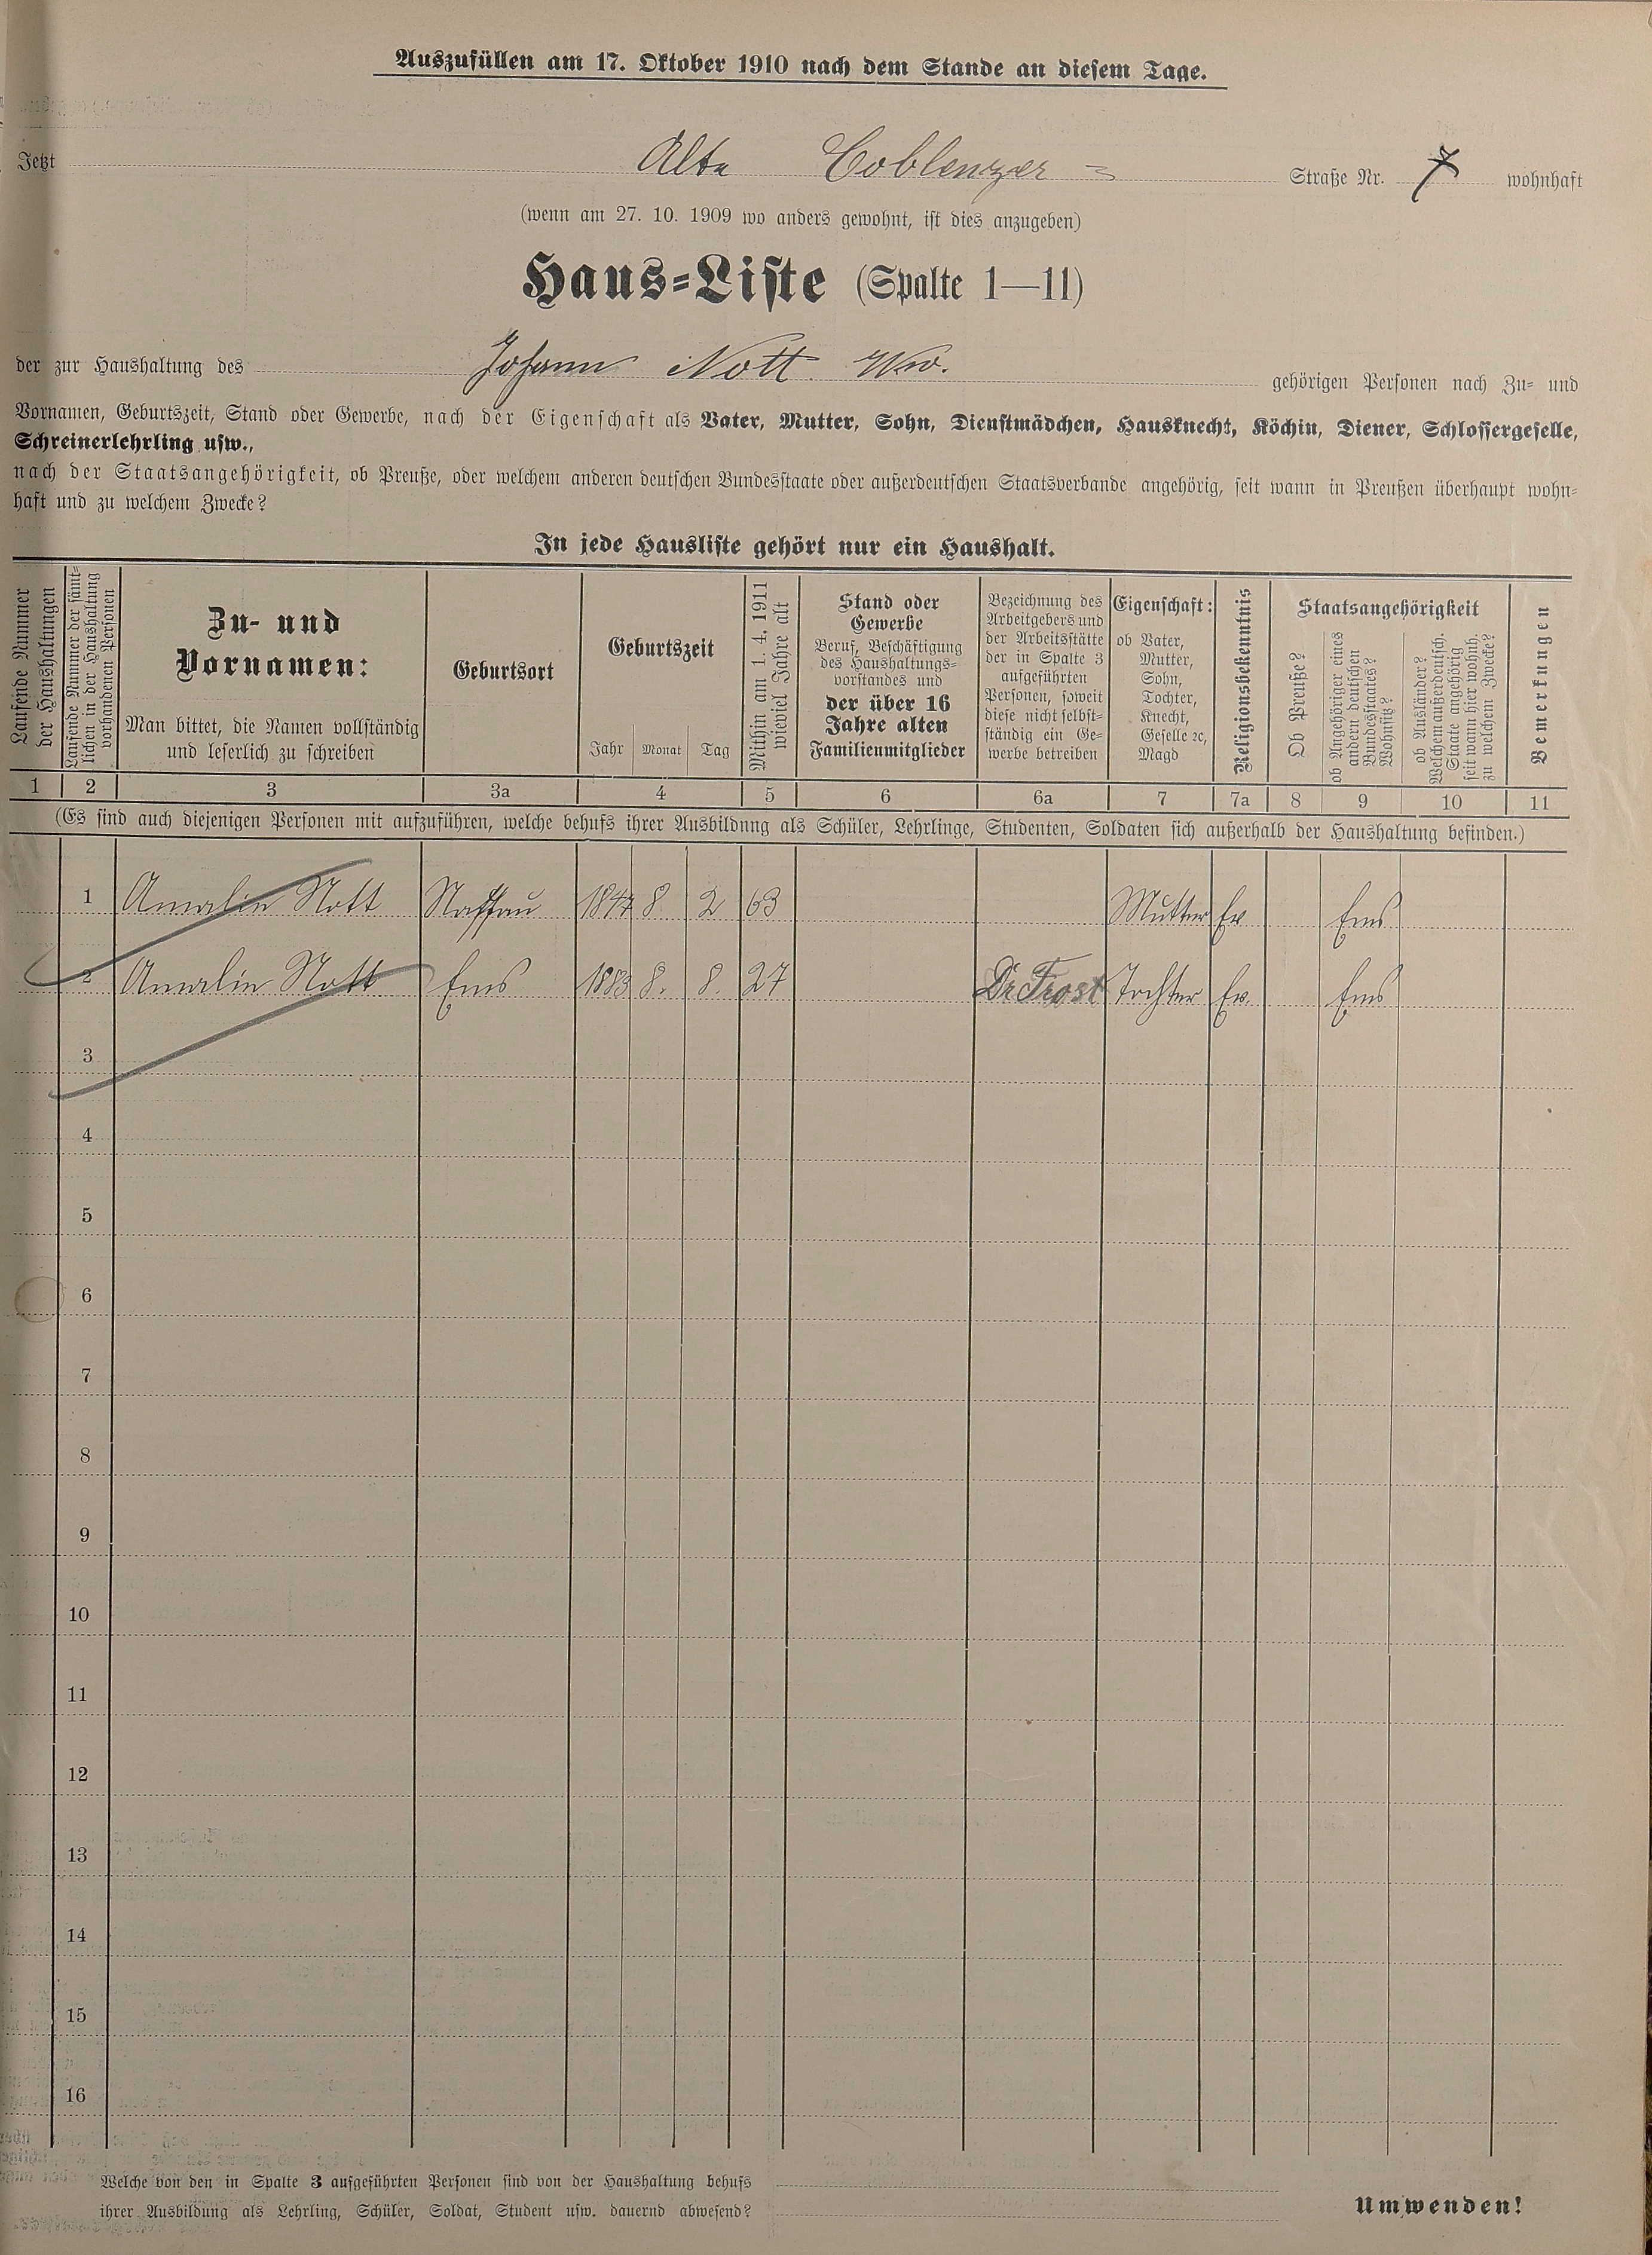 Auszufüllen am 17. Oktober 1910 nach dem Stande an diesem Tage.
Jetzt Alte Coblenzer = Straße Nr. 7 wohnhaft
(wenn am 27. 10. 1909 wo anders gewohnt, ist dies anzugeben)
Haus-Liste (Spalte 1—11)
der zur Haushaltung des Johann Nott Ww. gehörigen Personen nach Zu- und
Vornamen, Geburtszeit, Stand oder Gewerbe, nach der Eigenschaft als Vater, Mutter, Sohn, Dienstmädchen, Hausknecht, Köchin, Diener, Schlossergeselle,
Schreinerlehrling usw.,
nach der Staatsangehörigkeit, ob Preuße, oder welchem anderen deutschen Bundesstaate oder außerdeutschen Staatsverbande angehörig, seit wann in Preußen überhaupt wohn-
haft und zu welchem Zwecke?
In jede Hausliste gehört nur ein Haushalt.
Laufende Nummer
der Haushaltungen
Laufende Nummer der sämt-
lichen in der Haushaltung
vorhandenen Personen
Zu- und
Vornamen:
Man bittet, die Namen vollständig
und leserlich zu schreiben
Geburtsort
Geburtszeit
Jahr Monat Tag
Mithin am 1. 4. 1911
wieviel Jahre alt
Stand oder
Gewerbe
Beruf, Beschäftigung
des Haushaltungs-
vorstandes und
der über 16
Jahre alten
Familienmitglieder
Bezeichnung des
Arbeitgebers und
der Arbeitsstätte
der in Spalte 3
aufgeführten
Personen, soweit
diese nicht selbst-
ständig ein Ge-
werbe betreiben
Eigenschaft:
ob Vater,
Mutter,
Sohn,
Tochter,
Knecht,
Geselle ꝛc,
Magd
Religionsbekenntnis
Staatsangehörigkeit
Ob Preuße?
ob Angehöriger eines
andern deutschen
Bundesstaates?
Wohnsitz?
ob Ausländer?
Welchem außerdeutsch.
Staate angehörig
seit wann hier wohnh.
zu welchem Zwecke?
Bemerkungen
1 2 3 3a 4 5 6 6a 7 7a 8 9 10 11
(Es sind auch diejenigen Personen mit aufzuführen, welche behufs ihrer Ausbildung als Schüler, Lehrlinge, Studenten, Soldaten sich außerhalb der Haushaltung befinden.)
1 Amalie Nott Nassau 1847 8 2 63 Mutter Ev Ems
2 Amalie Nott Ems 1883 8. 8. 27 Dr Frost Tochter Ev. Ems
3
4
5
6
7
8
9
10
11
12
13
14
15
16
Welche von den in Spalte 3 aufgeführten Personen sind von der Haushaltung behufs
ihrer Ausbildung als Lehrling, Schüler, Soldat, Student usw. dauernd abwesend?
Umwenden!